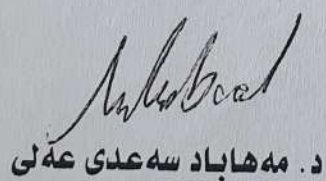 د. مەهاباد سەعدی عەلی